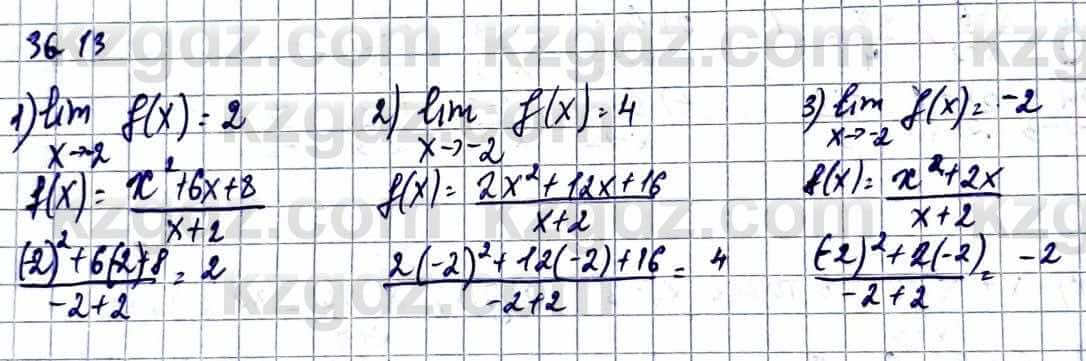 36.13
1) lim f(x) = 2
x→-2
f(x) = (x²+6x+8)/(x+2)
((-2)²+6(-2)+8)/(-2+2) = 2
2) lim f(x) = 4
x→-2
f(x) = (2x²+12x+16)/(x+2)
(2(-2)²+12(-2)+16)/(-2+2) = 4
3) lim f(x) = -2
x→-2
f(x) = (x²+2x)/(x+2)
((-2)²+2(-2))/(-2+2) = -2
kzgdz.com